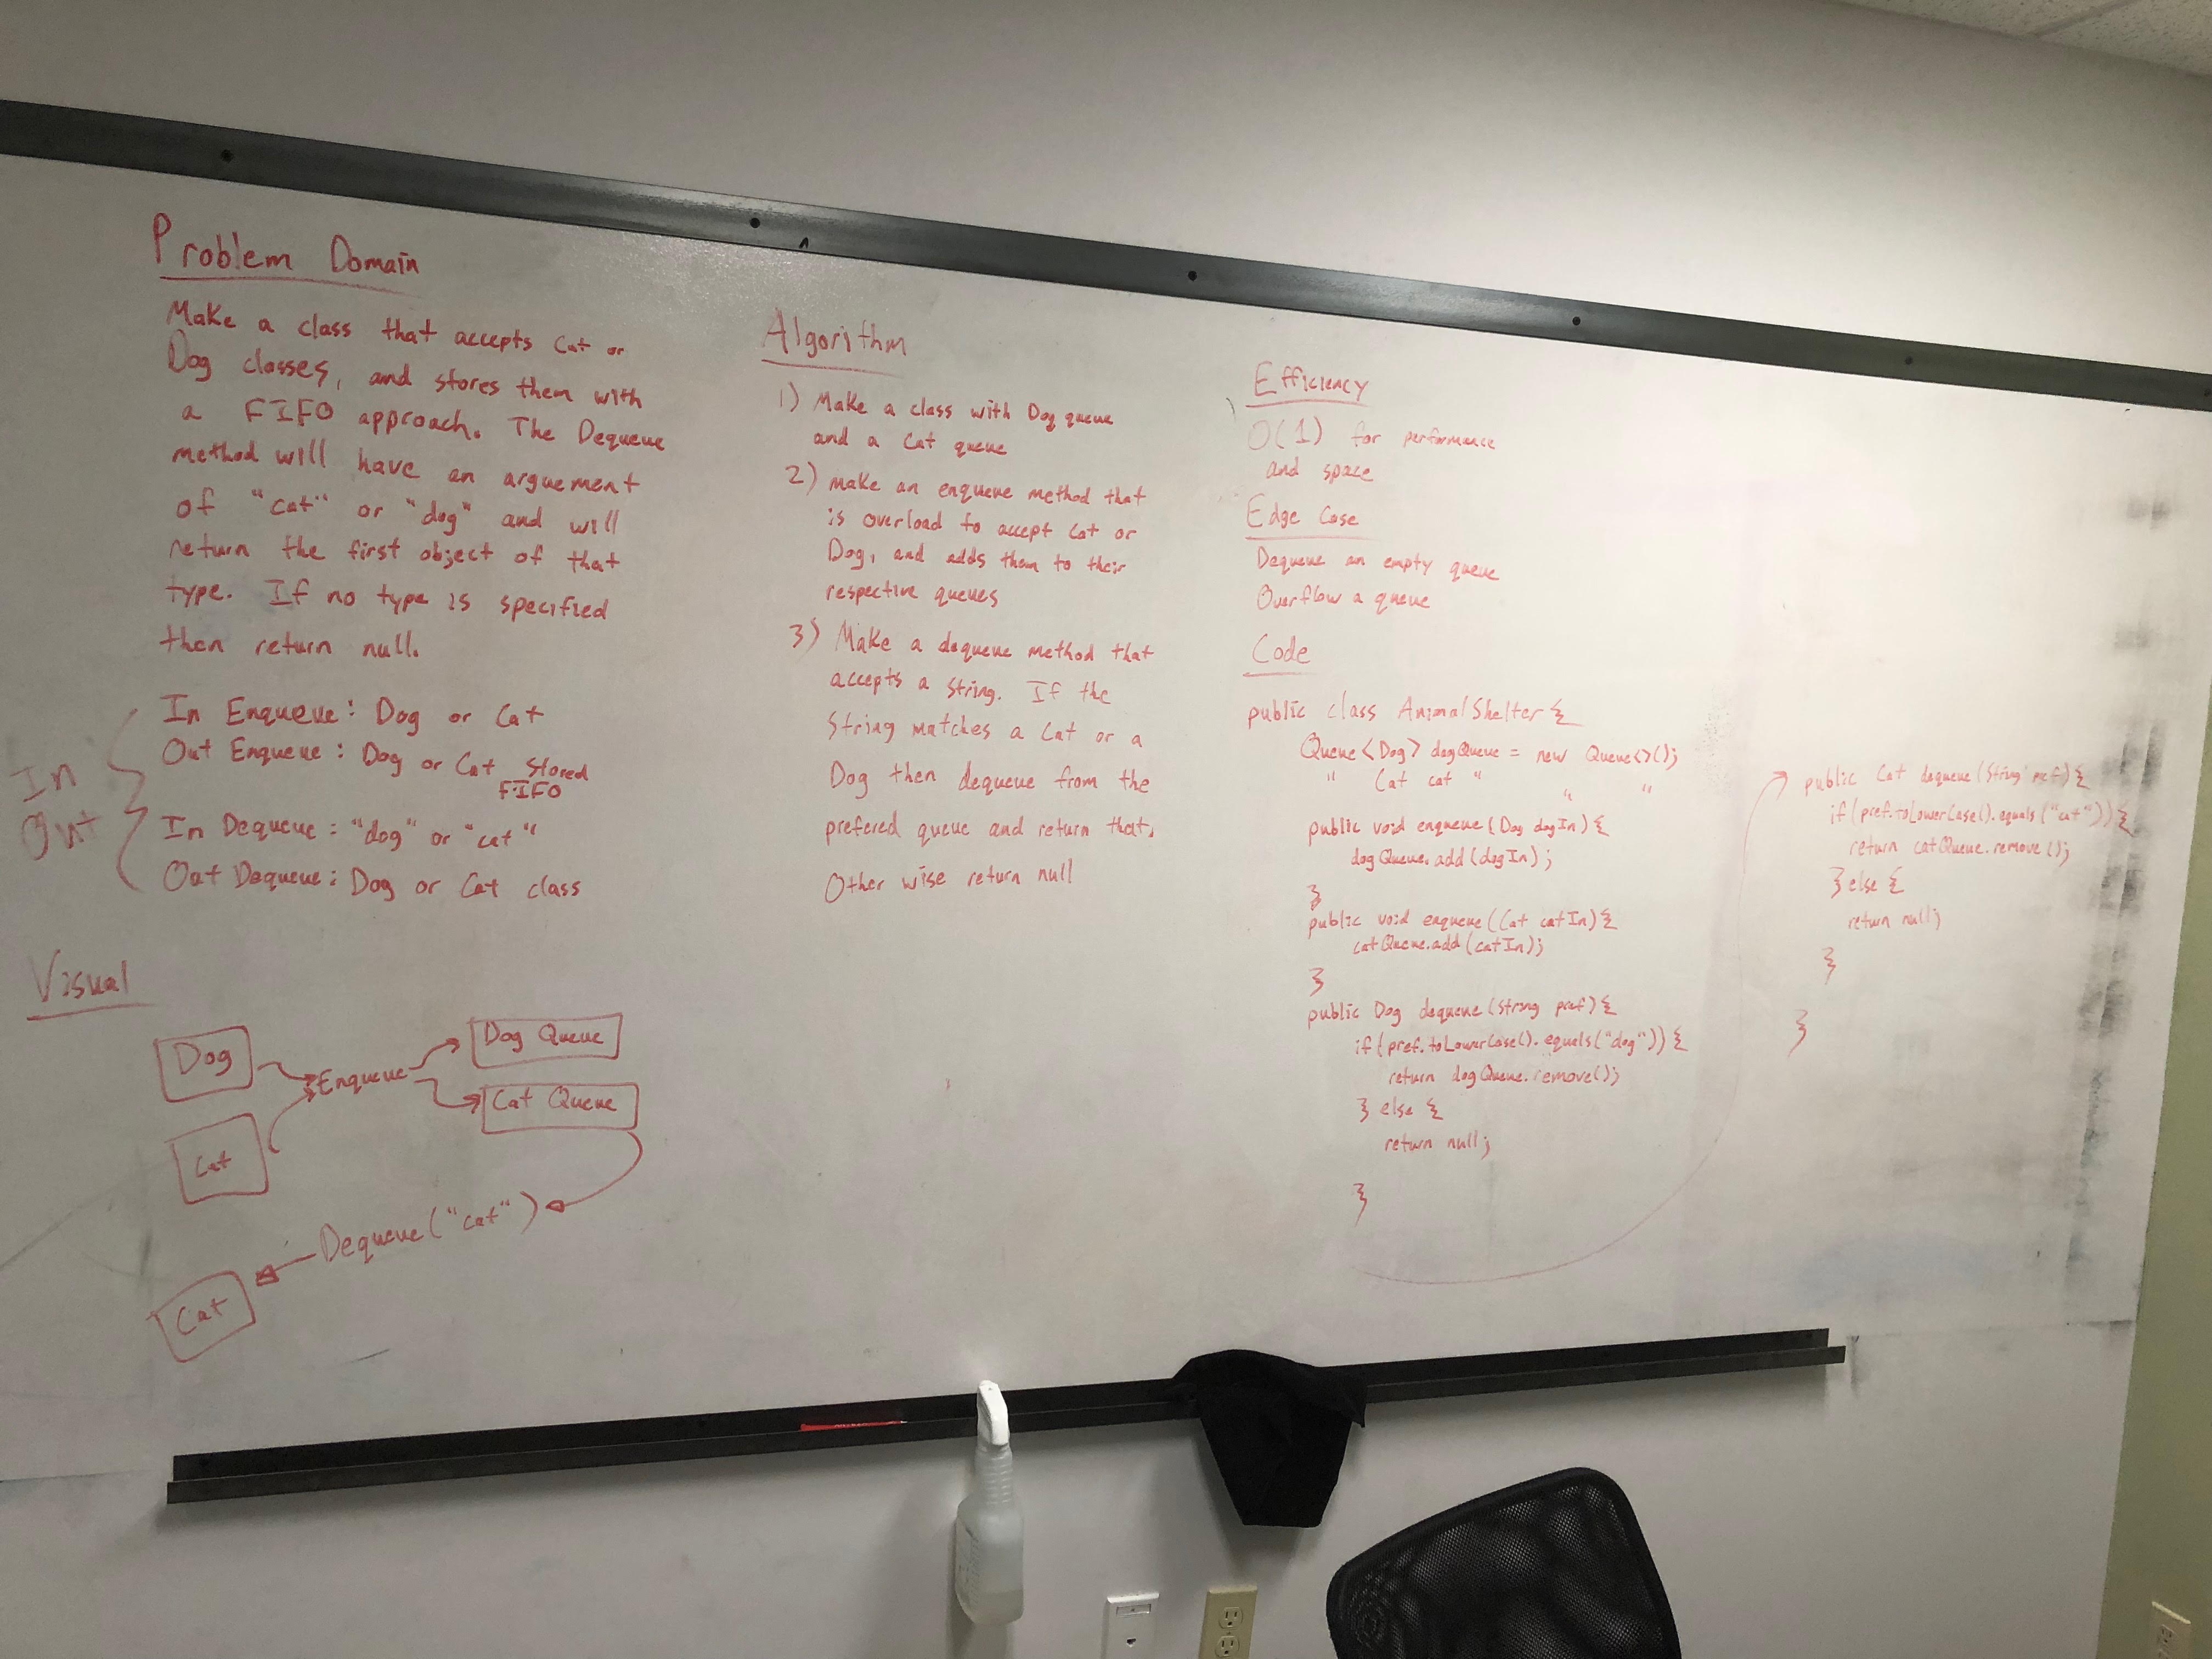 Problem Domain
Make a class that accepts Cat or
Dog classes, and stores them with
a FIFO approach. The Dequeue
method will have an arguement
of "cat" or "dog" and will
return the first object of that
type. If no type is specified
then return null.
In
Out
In Enqueue: Dog or Cat
Out Enqueue: Dog or Cat stored
FIFO
In Dequeue: "dog" or "cat"
Out Dequeue: Dog or Cat class
Visual
Dog
Cat
Enqueue
Dog Queue
Cat Queue
Dequeue("cat")
Cat
Algorithm
1) Make a class with Dog queue
and a Cat queue
2) Make an enqueue method that
is overload to accept Cat or
Dog, and adds them to their
respective queues
3) Make a dequeue method that
accepts a String. If the
String matches a Cat or a
Dog then dequeue from the
prefered queue and return that.
Other wise return null
Efficiency
O(1) for performance
and space
Edge Case
Dequeue an empty queue
Overflow a queue
Code
public class AnimalShelter {
Queue<Dog> dogQueue = new Queue<>();
" Cat cat " " "
public void enqueue(Dog dogIn) {
dogQueue.add(dogIn);
}
public void enqueue(Cat catIn) {
catQueue.add(catIn);
}
public Dog dequeue(String pref) {
if(pref.toLowerCase().equals("dog")) {
return dogQueue.remove();
} else {
return null;
}
public Cat dequeue(String pref) {
if(pref.toLowerCase().equals("cat")) {
return catQueue.remove();
} else {
return null;
}
}